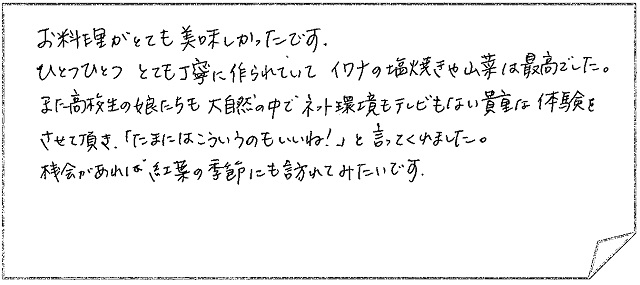 お料理がとても美味しかったです.
ひとつひとつ とても丁寧に作られていて イワナの塩焼きや山菜は最高でした。
また高校生の娘たちも 大自然の中で ネット環境もテレビもない貴重な 体験を
させて頂き、「たまにはこういうのもいいね!」と 言ってくれました。
機会があれば 紅葉の季節にも訪れてみたいです.